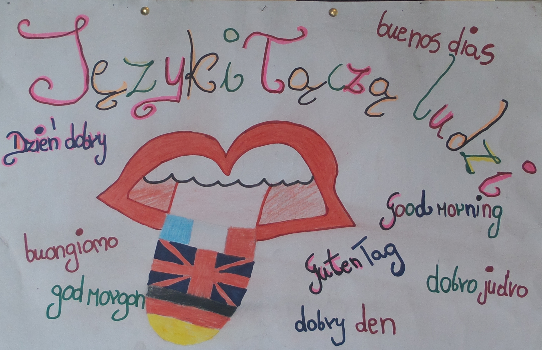 Języki Łączą ludzi
buenos dias
Dzień dobry
Good Morning
buongiorno
Guten Tag
god Morgon
dobro judro
dobry den